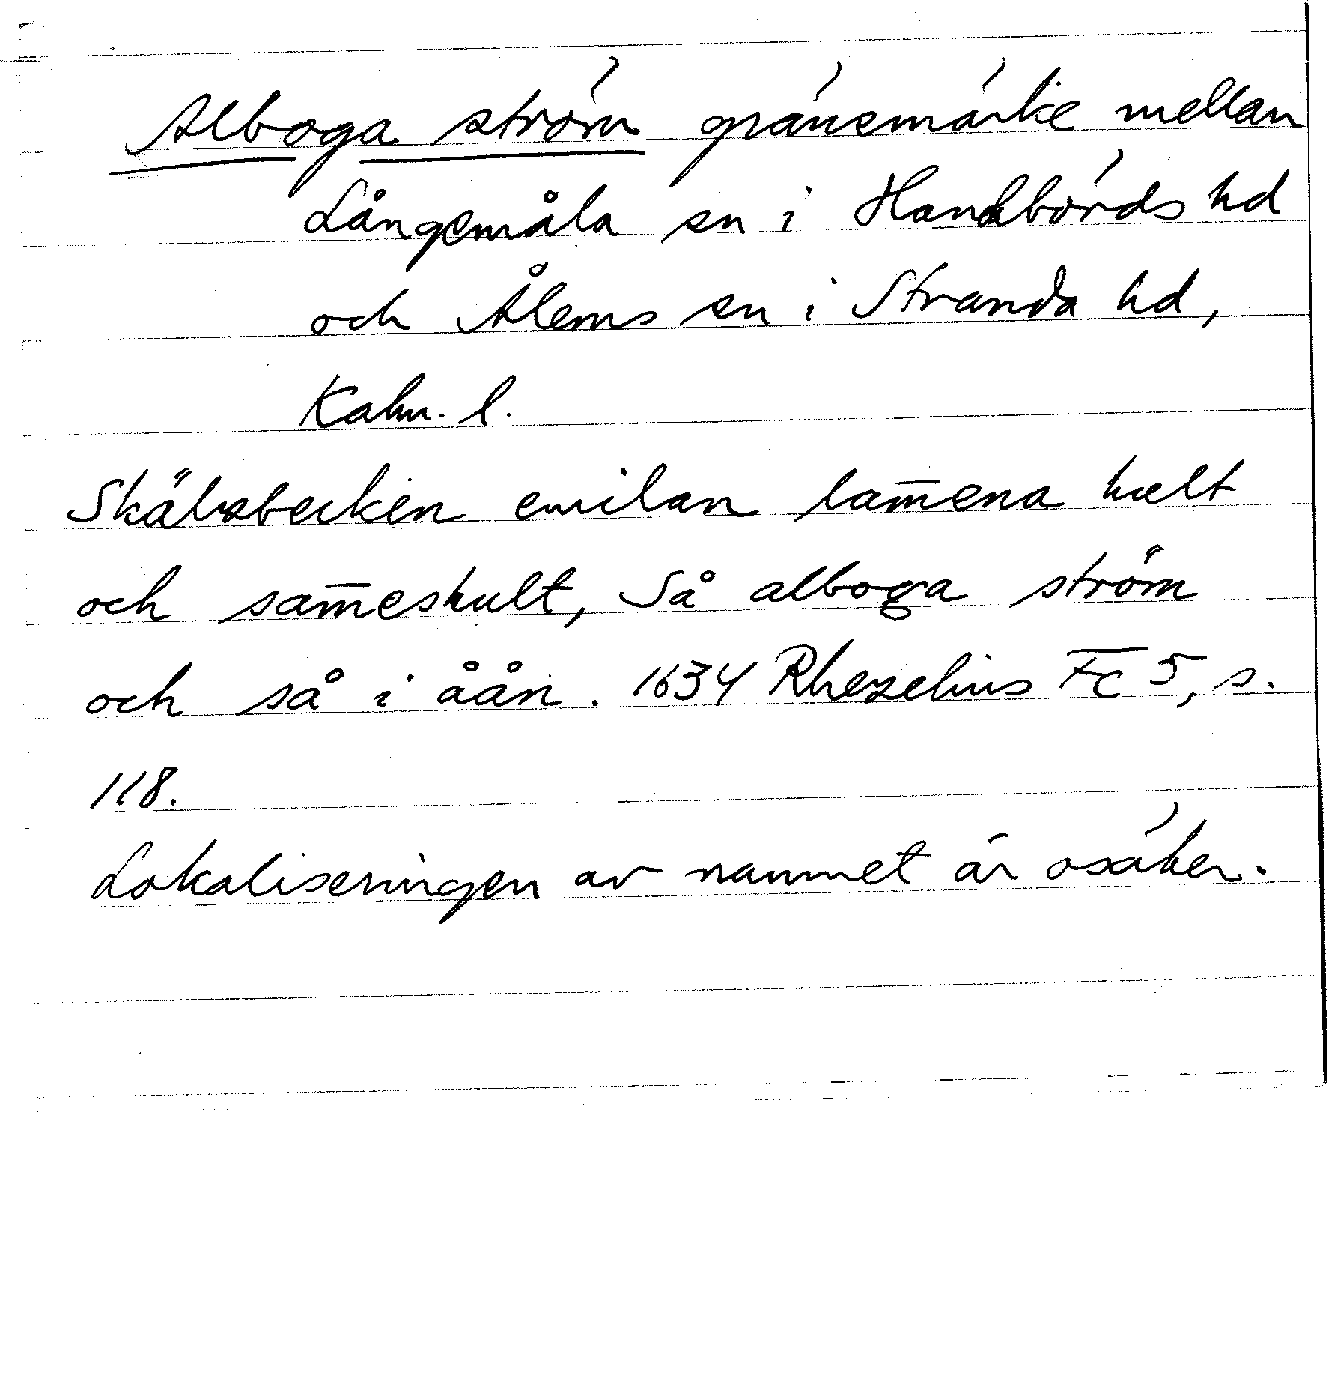 Alboga ström gränsmärke mellan
Långemåla sn i Handbörds hd
och Ålems sn i Stranda hd,
Kalm. l.
Skälsbecken emilan lam̅ena hult
och sam̅eskult, Så alboga ström
och så i åån. 1634 Rhezelius Fc 5, s.
118.
Lokaliseringen av namnet är osäker.